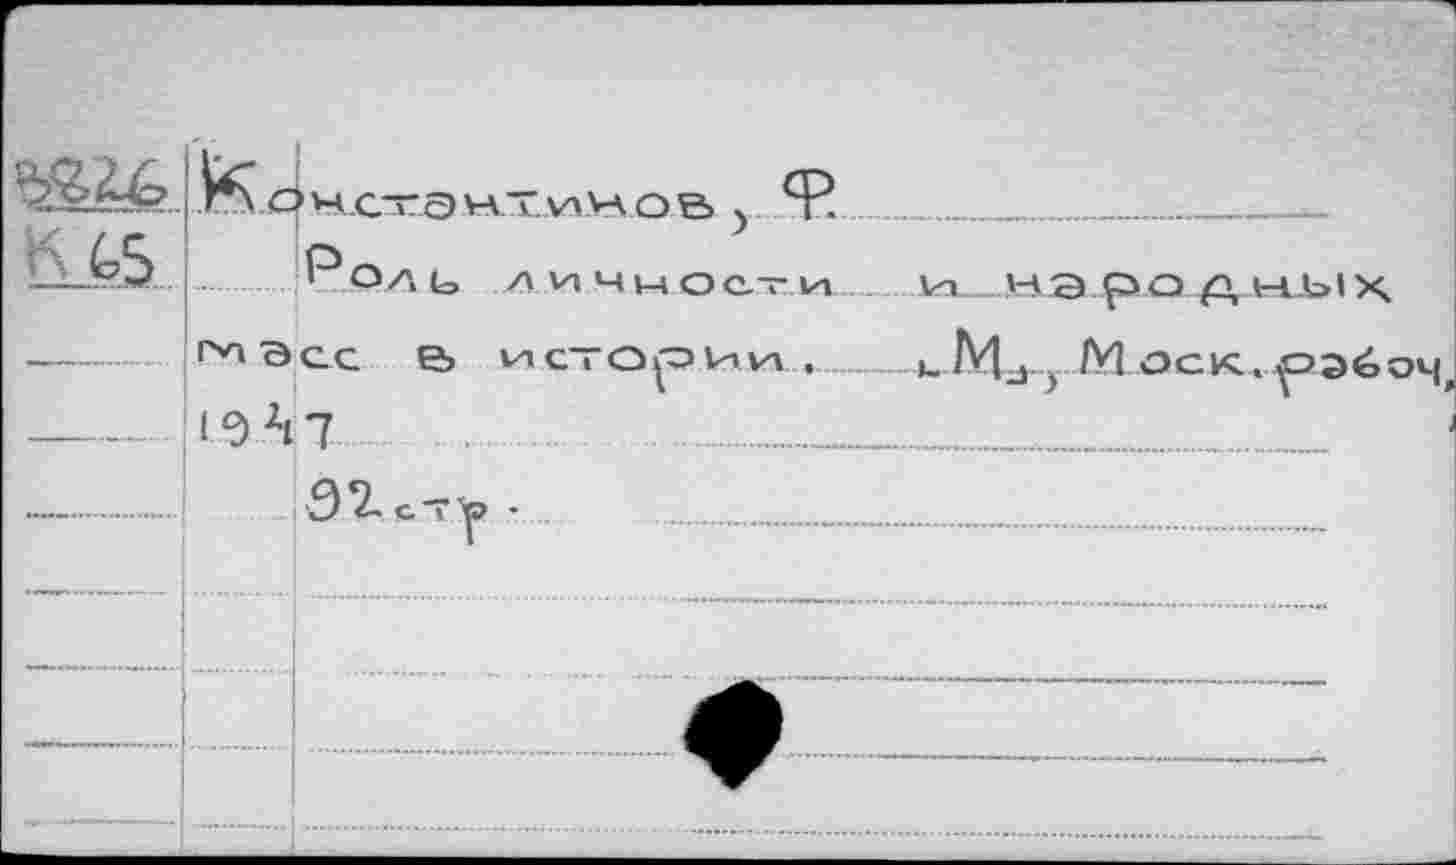 Константинов, Ф.
К65
Роль личности и народных
масс в истории. [М], Моск. рабоч,
1947
92 стр.